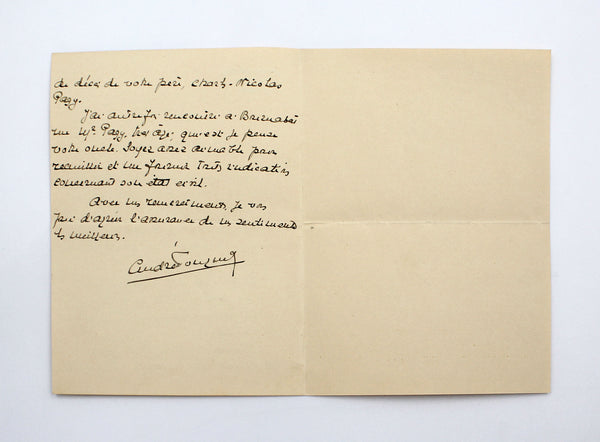 de décès de votre père, Charles-Nicolas
Pagy.
J'ai autrefois rencontré à
un Mr. Pagy, très âgé, qui est je pense
votre oncle. Soyez assez aimable pour
recueillir et me fournir indications
concernant son état civil.
Avec mes remerciements, je vous
prie d'agréer l'assurance de mes sentiments
les meilleurs.
André